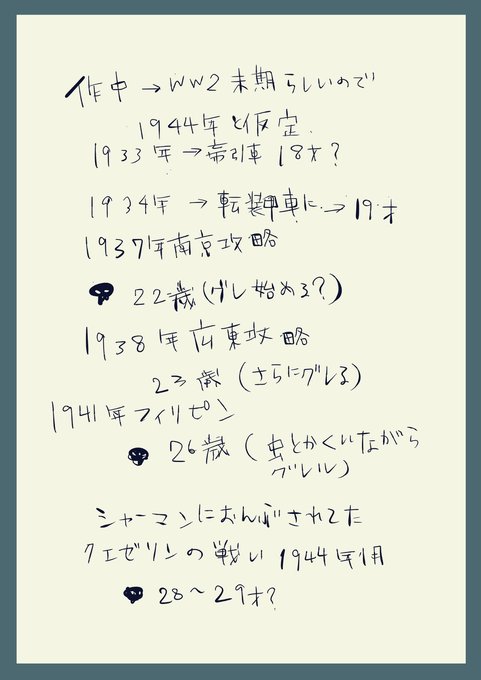 作中→WW2末期らしいので
1944年と仮定.
1933年→牽引車 18才?
1934年 → 転装甲車に→19才
1937年南京攻略
22歳(グレ始める?)
1938年広東攻略
23歳(さらにグレる)
1941年フィリピン
26歳(虫とかくいながら
グレル)
シャーマンにおんぶされてた
クェゼリンの戦い 1944年1月
28〜29才?